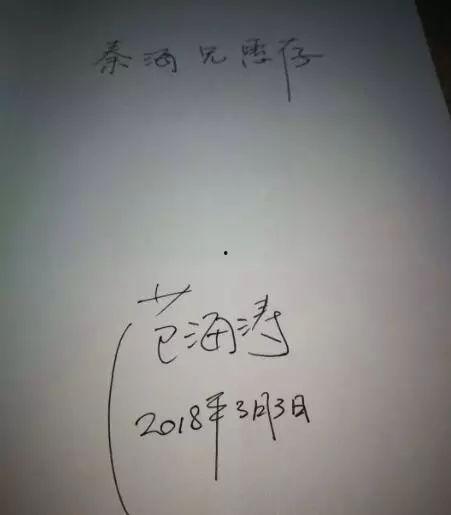 秦海兄惠存
范海涛
2018年3月3日